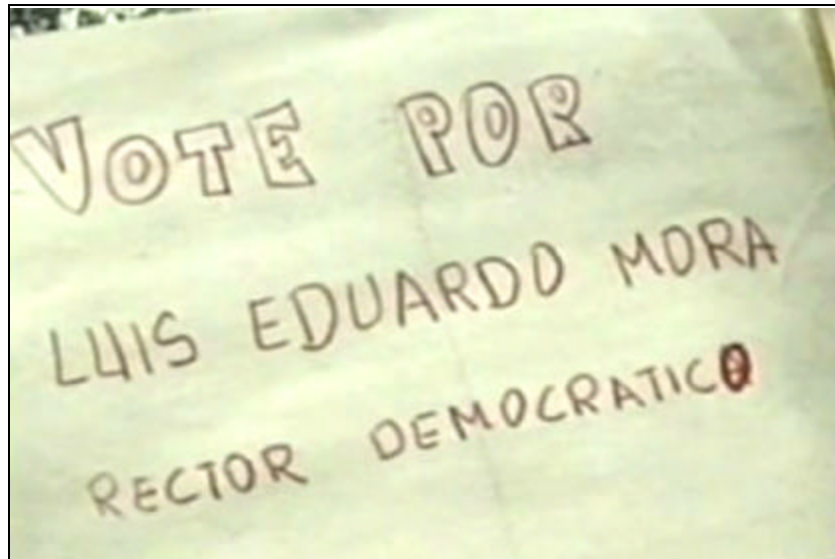 VOTE POR
LUIS EDUARDO MORA
RECTOR DEMOCRATICO